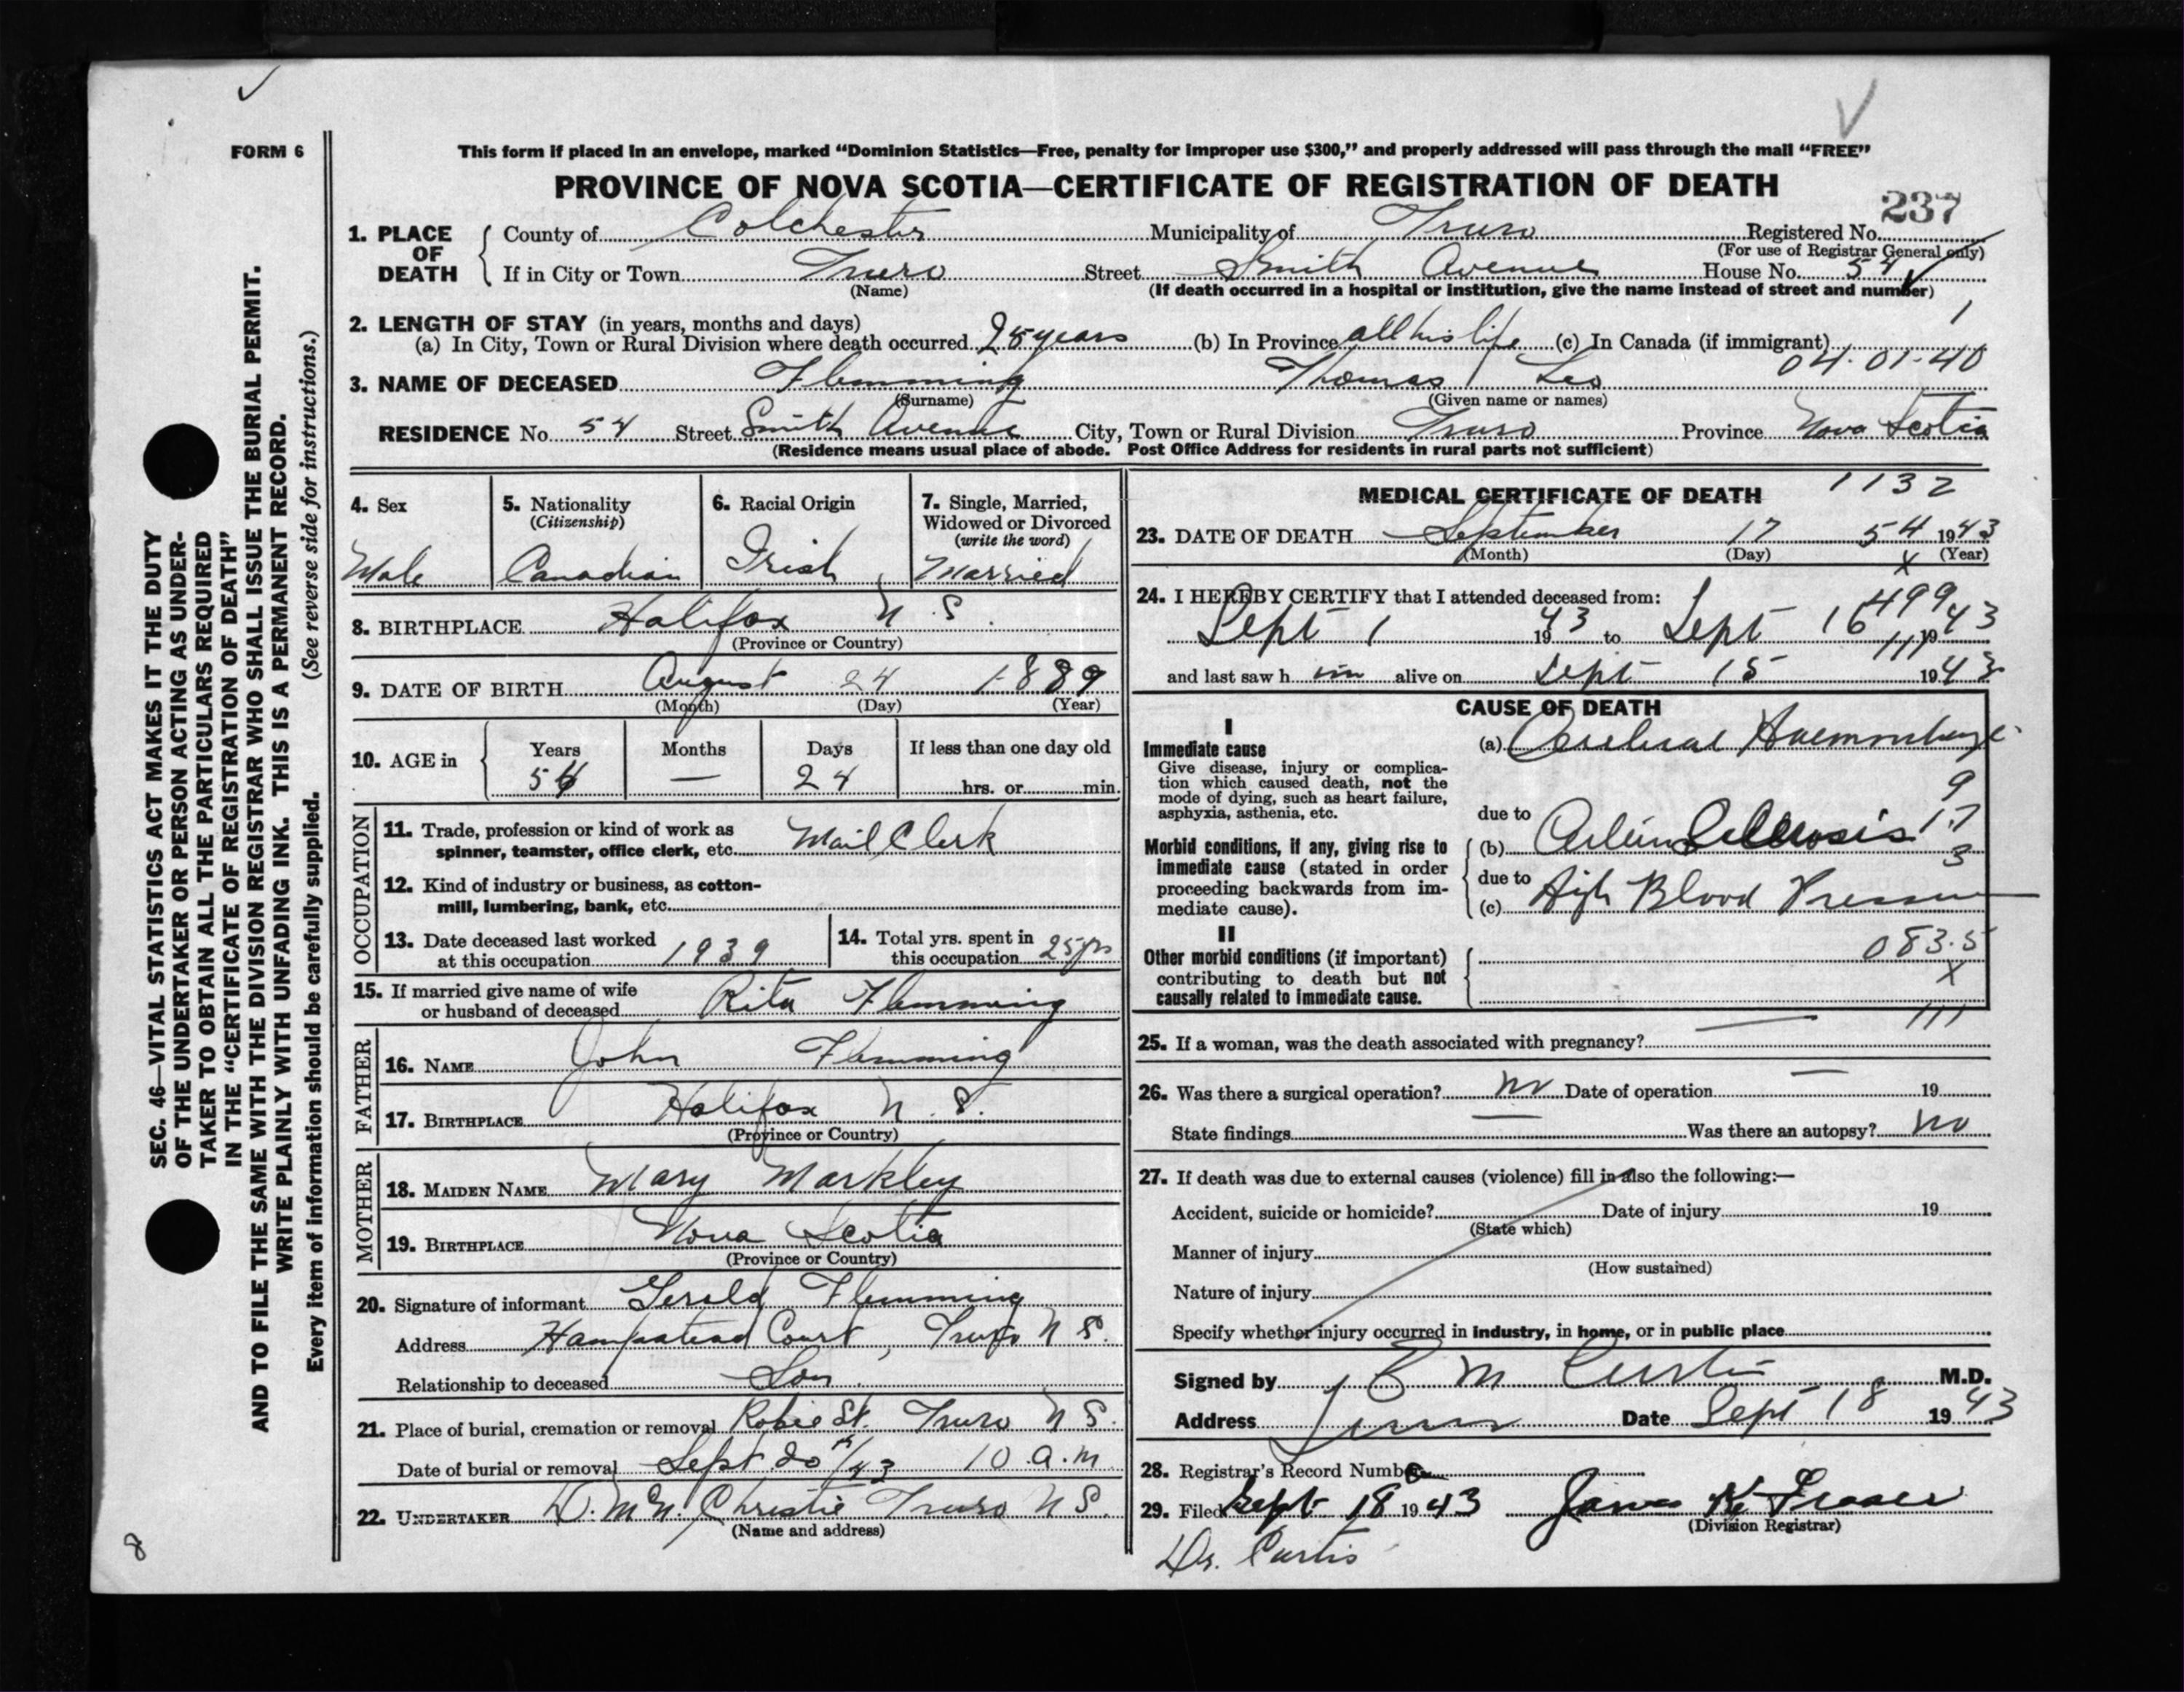 FORM 6
This form if placed in an envelope, marked “Dominion Statistics—Free, penalty for improper use $300,” and properly addressed will pass through the mail “FREE”
PROVINCE OF NOVA SCOTIA—CERTIFICATE OF REGISTRATION OF DEATH
237
1. PLACE OF DEATH
County of Colchester Municipality of Truro Registered No.
(For use of Registrar General only)
If in City or Town Truro Street Smith Avenue House No. 54
(Name) (If death occurred in a hospital or institution, give the name instead of street and number)
1
2. LENGTH OF STAY (in years, months and days)
(a) In City, Town or Rural Division where death occurred 25 years (b) In Province all his life (c) In Canada (if immigrant)
04-01-40
3. NAME OF DECEASED Flemming Thomas Leo
(Surname) (Given name or names)
RESIDENCE No. 54 Street Smith Avenue City, Town or Rural Division Truro Province Nova Scotia
(Residence means usual place of abode. Post Office Address for residents in rural parts not sufficient)
4. Sex
Male
5. Nationality
(Citizenship)
Canadian
6. Racial Origin
Irish
7. Single, Married,
Widowed or Divorced
(write the word)
Married
8. BIRTHPLACE Halifax N.S.
(Province or Country)
9. DATE OF BIRTH August 24 1889
(Month) (Day) (Year)
10. AGE in
Years Months Days If less than one day old
54 — 24 hrs. or min.
OCCUPATION
11. Trade, profession or kind of work as
spinner, teamster, office clerk, etc. Mail Clerk
12. Kind of industry or business, as cotton-
mill, lumbering, bank, etc.
13. Date deceased last worked
at this occupation 1939
14. Total yrs. spent in
this occupation 25 yrs
15. If married give name of wife
or husband of deceased Rita Flemming
FATHER
16. NAME John Flemming
17. BIRTHPLACE Halifax N.S.
(Province or Country)
MOTHER
18. MAIDEN NAME Mary Markley
19. BIRTHPLACE Nova Scotia
(Province or Country)
20. Signature of informant Gerald Flemming
Address Hampstead Court, Truro N S.
Relationship to deceased Son.
21. Place of burial, cremation or removal Robie St. Truro N S.
Date of burial or removal Sept 20th/43 10 a.m.
22. UNDERTAKER D. McN. Christie Truro N S.
(Name and address)
MEDICAL CERTIFICATE OF DEATH 1132
23. DATE OF DEATH September 17 54 1943
(Month) (Day) x (Year)
24. I HEREBY CERTIFY that I attended deceased from:
499
Sept 1 1943 to Sept 16 1943
111
and last saw h im alive on Sept 15 1943
CAUSE OF DEATH
I
Immediate cause
Give disease, injury or complica-
tion which caused death, not the
mode of dying, such as heart failure,
asphyxia, asthenia, etc.
(a) Cerebral Haemorrhage
9
due to
17
Morbid conditions, if any, giving rise to
immediate cause (stated in order
proceeding backwards from im-
mediate cause).
(b) Arterio Sclerosis
3
due to
(c) High Blood Pressure
II
Other morbid conditions (if important)
contributing to death but not
causally related to immediate cause.
083.5
X
111
25. If a woman, was the death associated with pregnancy? —
26. Was there a surgical operation? no Date of operation — 19
State findings — Was there an autopsy? no
27. If death was due to external causes (violence) fill in also the following:—
Accident, suicide or homicide? Date of injury 19
(State which)
Manner of injury
(How sustained)
Nature of injury
Specify whether injury occurred in industry, in home, or in public place
Signed by E M Curtis M.D.
Address Truro Date Sept 18 1943
28. Registrar's Record Number
29. Filed Sept 18 1943 James K. Fraser
(Division Registrar)
Dr. Curtis
SEC. 46—VITAL STATISTICS ACT MAKES IT THE DUTY
OF THE UNDERTAKER OR PERSON ACTING AS UNDER-
TAKER TO OBTAIN ALL THE PARTICULARS REQUIRED
IN THE “CERTIFICATE OF REGISTRATION OF DEATH”
AND TO FILE THE SAME WITH THE DIVISION REGISTRAR WHO SHALL ISSUE THE BURIAL PERMIT.
WRITE PLAINLY WITH UNFADING INK. THIS IS A PERMANENT RECORD.
Every item of information should be carefully supplied. (See reverse side for instructions.)
8